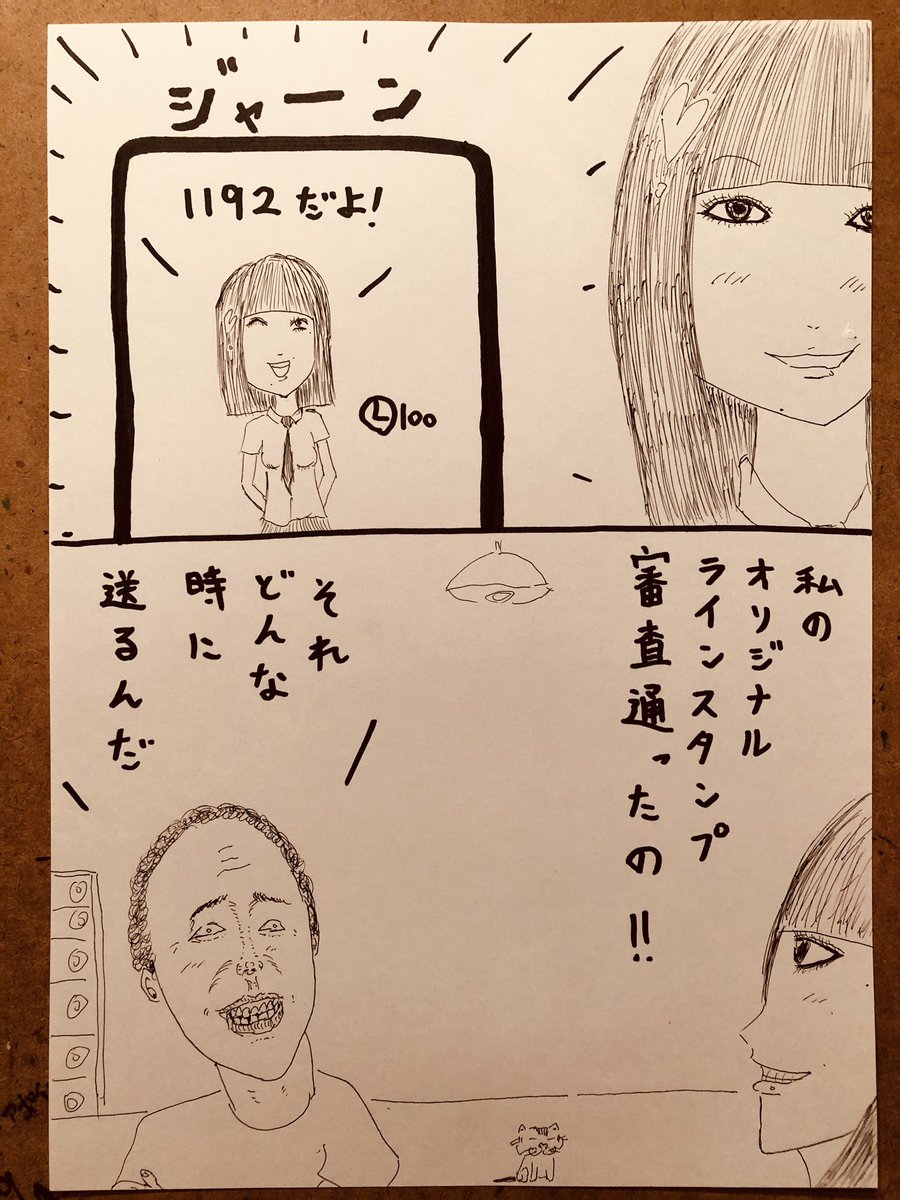 ジャーン
1192だよ!
Ⓛ100
私の
オリジナル
ラインスタンプ
審査通ったの!!
それ
どんな
時に
送るんだ